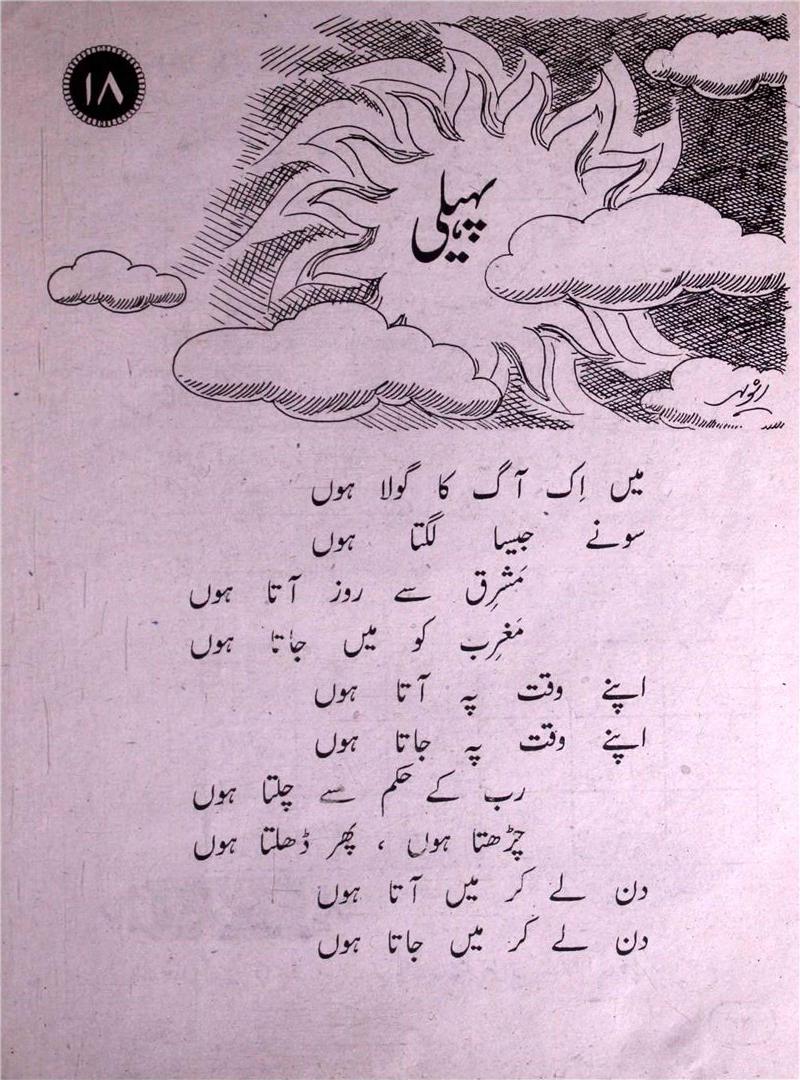 ۱۸
پہیلی
میں اِک آگ کا گولا ہوں
سونے جیسا لگتا ہوں
مَشرِق سے روز آتا ہوں
مَغرِب کو میں جاتا ہوں
اپنے وقت پہ آتا ہوں
اپنے وقت پہ جاتا ہوں
رب کے حکم سے چلتا ہوں
چڑھتا ہوں ، پھر ڈھلتا ہوں
دن لے کر میں آتا ہوں
دن لے کر میں جاتا ہوں